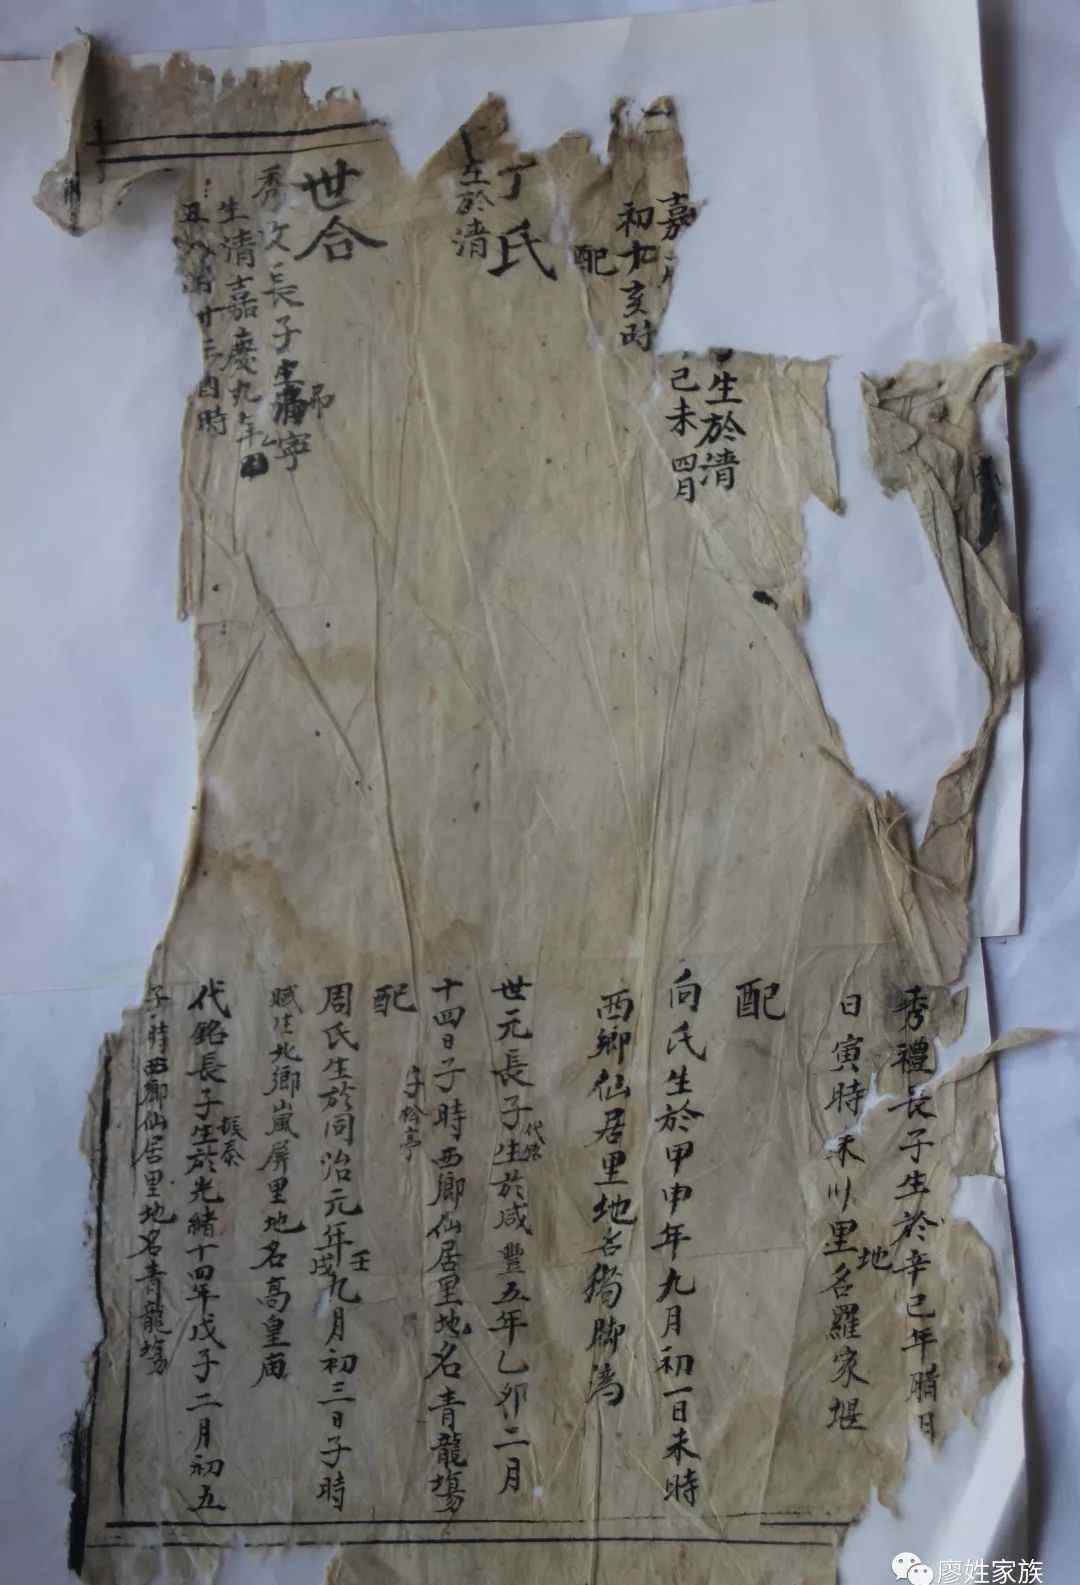 生於清
己未四月
嘉
初九亥时
配
丁氏
生於清
世合
秀文長子生
寧
生清嘉慶九年
廿三酉時
秀禮長子生於辛巳年腊月
日寅時末川里地名羅家堰
配
向氏生於甲申年九月初一日未時
西鄉仙居里地名獨脚湾
世元長子代銘生於咸豐五年乙卯二月
十四日子時西鄉仙居里地名青龍塲
子於亭
配
周氏生於同治元年壬戌九月初三日子時
北鄉嵐屏里地名高皇庙
代銘長子振泰生於光緒十四年戊子二月初五
子時西鄉仙居里地名青龍塲
廖姓家族